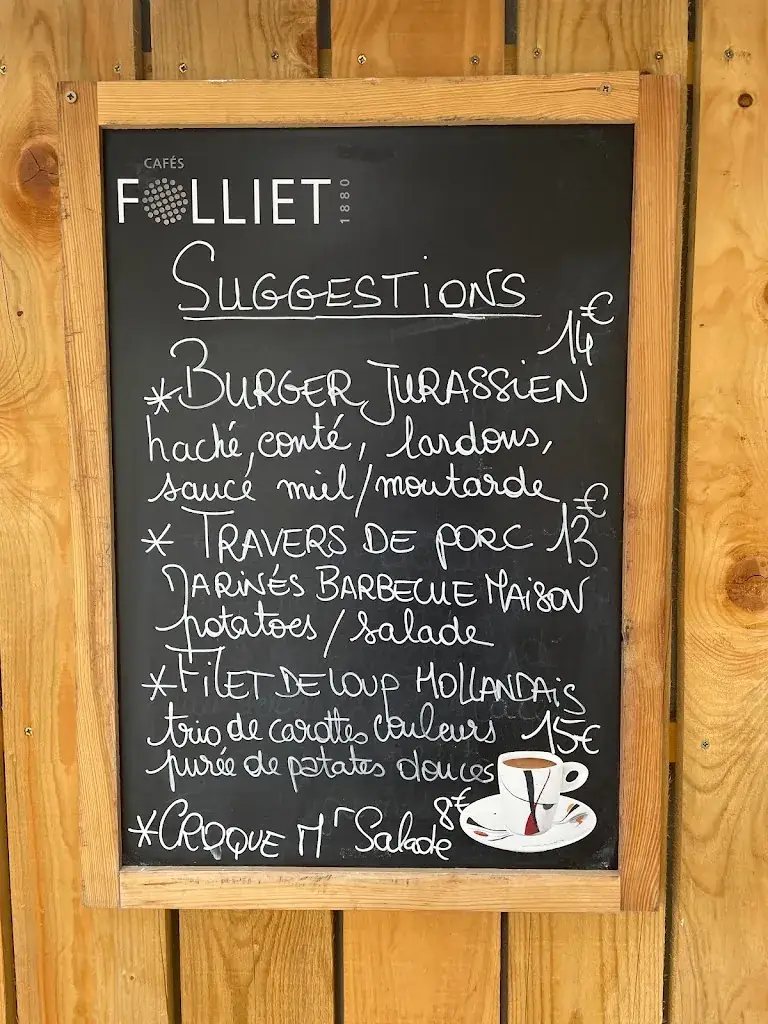 CAFÉS
FOLLIET 1880
SUGGESTIONS
14€
* BURGER JURASSIEN
haché, conté, lardons,
sauce miel/moutarde
* TRAVERS DE PORC 13€
MARINÉS BARBECUE MAISON
potatoes / salade
* FILET DE LOUP HOLLANDAIS
trio de carottes couleurs 15€
purée de patates douces
* CROQUE Mr Salade 8€